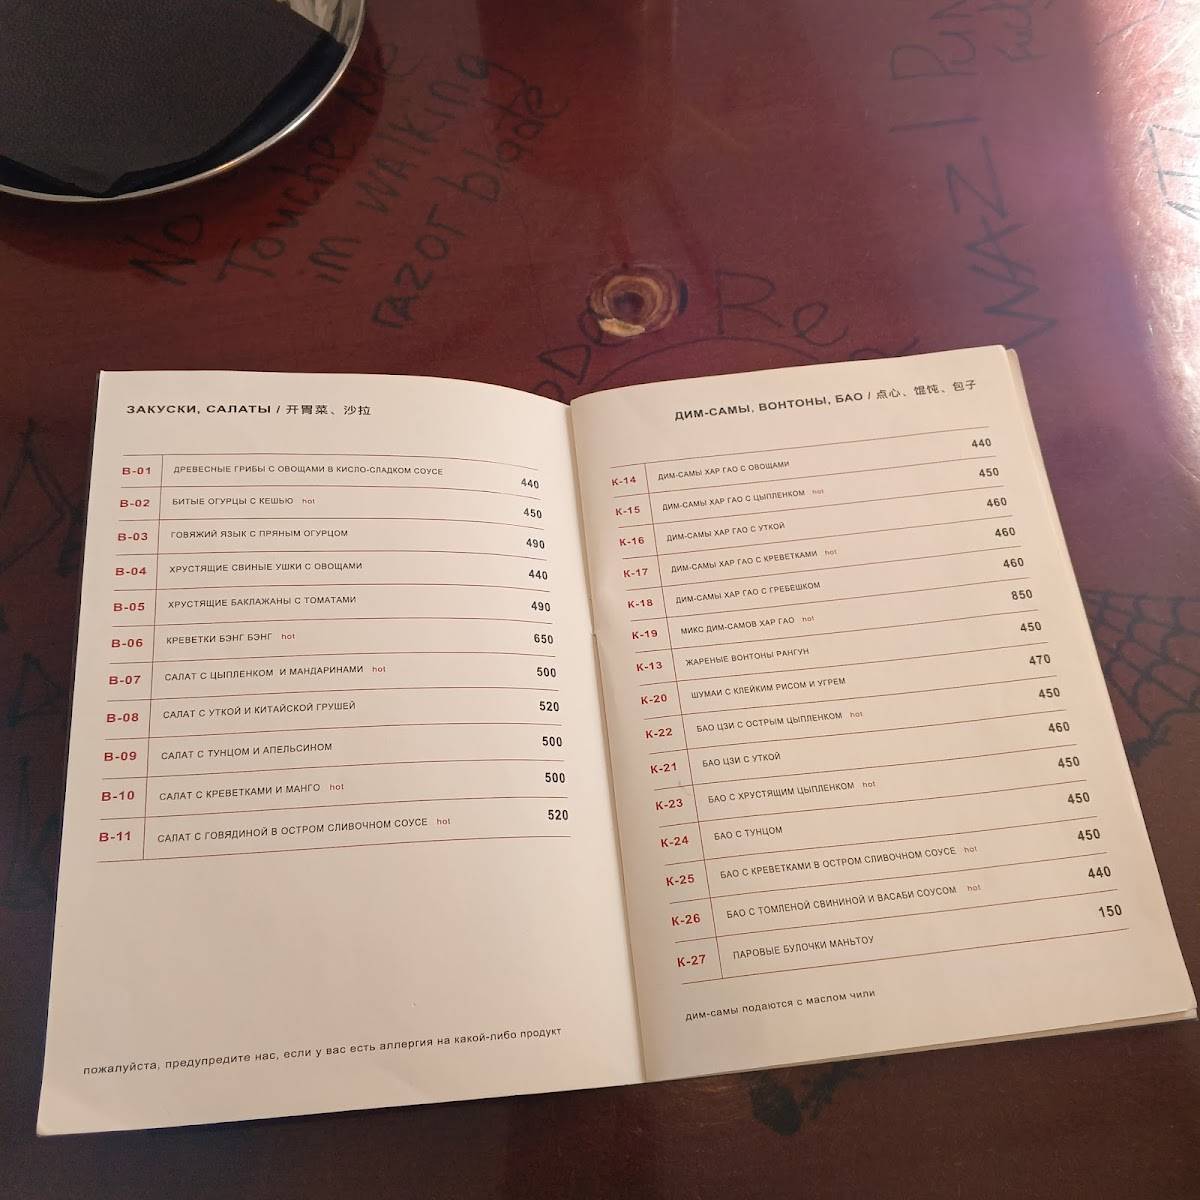 No
Touche Me
im walking
razor blade
ЗАКУСКИ, САЛАТЫ / 开胃菜、沙拉
B-01 ДРЕВЕСНЫЕ ГРИБЫ С ОВОЩАМИ В КИСЛО-СЛАДКОМ СОУСЕ 440
B-02 БИТЫЕ ОГУРЦЫ С КЕШЬЮ hot 450
B-03 ГОВЯЖИЙ ЯЗЫК С ПРЯНЫМ ОГУРЦОМ 490
B-04 ХРУСТЯЩИЕ СВИНЫЕ УШКИ С ОВОЩАМИ 440
B-05 ХРУСТЯЩИЕ БАКЛАЖАНЫ С ТОМАТАМИ 490
B-06 КРЕВЕТКИ БЭНГ БЭНГ hot 650
B-07 САЛАТ С ЦЫПЛЕНКОМ И МАНДАРИНАМИ hot 500
B-08 САЛАТ С УТКОЙ И КИТАЙСКОЙ ГРУШЕЙ 520
B-09 САЛАТ С ТУНЦОМ И АПЕЛЬСИНОМ 500
B-10 САЛАТ С КРЕВЕТКАМИ И МАНГО hot 500
B-11 САЛАТ С ГОВЯДИНОЙ В ОСТРОМ СЛИВОЧНОМ СОУСЕ hot 520
пожалуйста, предупредите нас, если у вас есть аллергия на какой-либо продукт
ДИМ-САМЫ, ВОНТОНЫ, БАО / 点心、馄饨、包子
К-14 ДИМ-САМЫ ХАР ГАО С ОВОЩАМИ 440
К-15 ДИМ-САМЫ ХАР ГАО С ЦЫПЛЕНКОМ hot 450
К-16 ДИМ-САМЫ ХАР ГАО С УТКОЙ 460
К-17 ДИМ-САМЫ ХАР ГАО С КРЕВЕТКАМИ hot 460
К-18 ДИМ-САМЫ ХАР ГАО С ГРЕБЕШКОМ 460
К-19 МИКС ДИМ-САМОВ ХАР ГАО hot 850
К-13 ЖАРЕНЫЕ ВОНТОНЫ РАНГУН 450
К-20 ШУМАИ С КЛЕЙКИМ РИСОМ И УГРЕМ 470
К-22 БАО ЦЗИ С ОСТРЫМ ЦЫПЛЕНКОМ hot 450
К-21 БАО ЦЗИ С УТКОЙ 460
К-23 БАО С ХРУСТЯЩИМ ЦЫПЛЕНКОМ hot 450
К-24 БАО С ТУНЦОМ 450
К-25 БАО С КРЕВЕТКАМИ В ОСТРОМ СЛИВОЧНОМ СОУСЕ hot 450
К-26 БАО С ТОМЛЕНОЙ СВИНИНОЙ И ВАСАБИ СОУСОМ hot 440
К-27 ПАРОВЫЕ БУЛОЧКИ МАНЬТОУ 150
дим-самы подаются с маслом чили